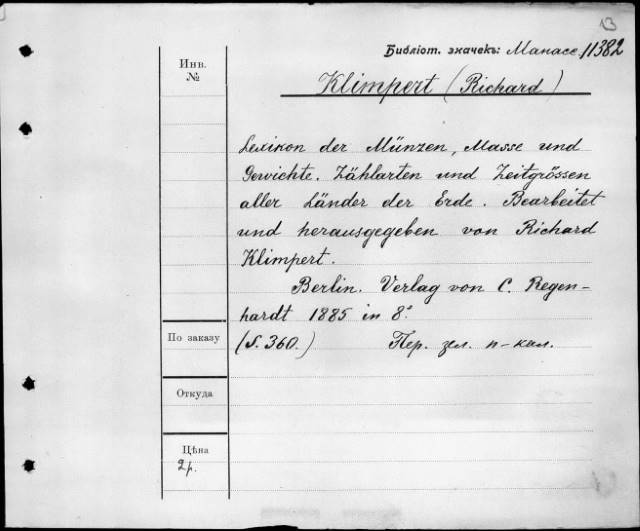 13
Библіот. значекъ: Manace 11382
Инв.
№
Klimpert (Richard)
Lexikon der Münzen, Masse und
Gewichte. Zählarten und Zeitgrössen
aller Länder der Erde. Bearbeitet
und herausgegeben von Richard
Klimpert.
Berlin. Verlag von C. Regen-
hardt 1885 in 8°
По заказу
(S. 360.) Пер. зел. п-кал.
Откуда
Цѣна
2 р.